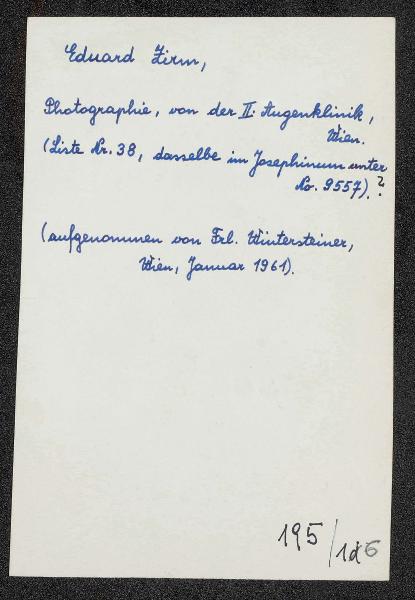 Eduard Zirm,
Photographie, von der II. Augenklinik,
Wien.
(Liste Nr. 38, dasselbe im Josephinum unter
No. 9557). ?
(aufgenommen von Frl. Wintersteiner,
Wien, Januar 1961).
195/1d6